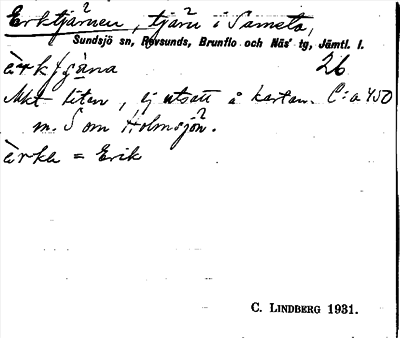 Erktjärnen, tjärn i Sameta,
Sundsjö sn, Revsunds, Brunflo och Näs' tg, Jämtl. l.
ärkʃǥàna 26
Mkt liten, ej utsatt å kartan. C:a 450
m. S om Holmsjön.
ärka = Erik
C. LINDBERG 1931.